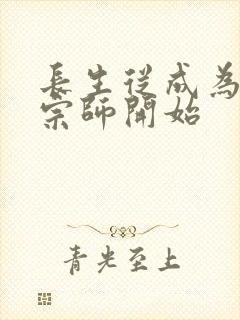 長生從成為
宗師開始
青光至上